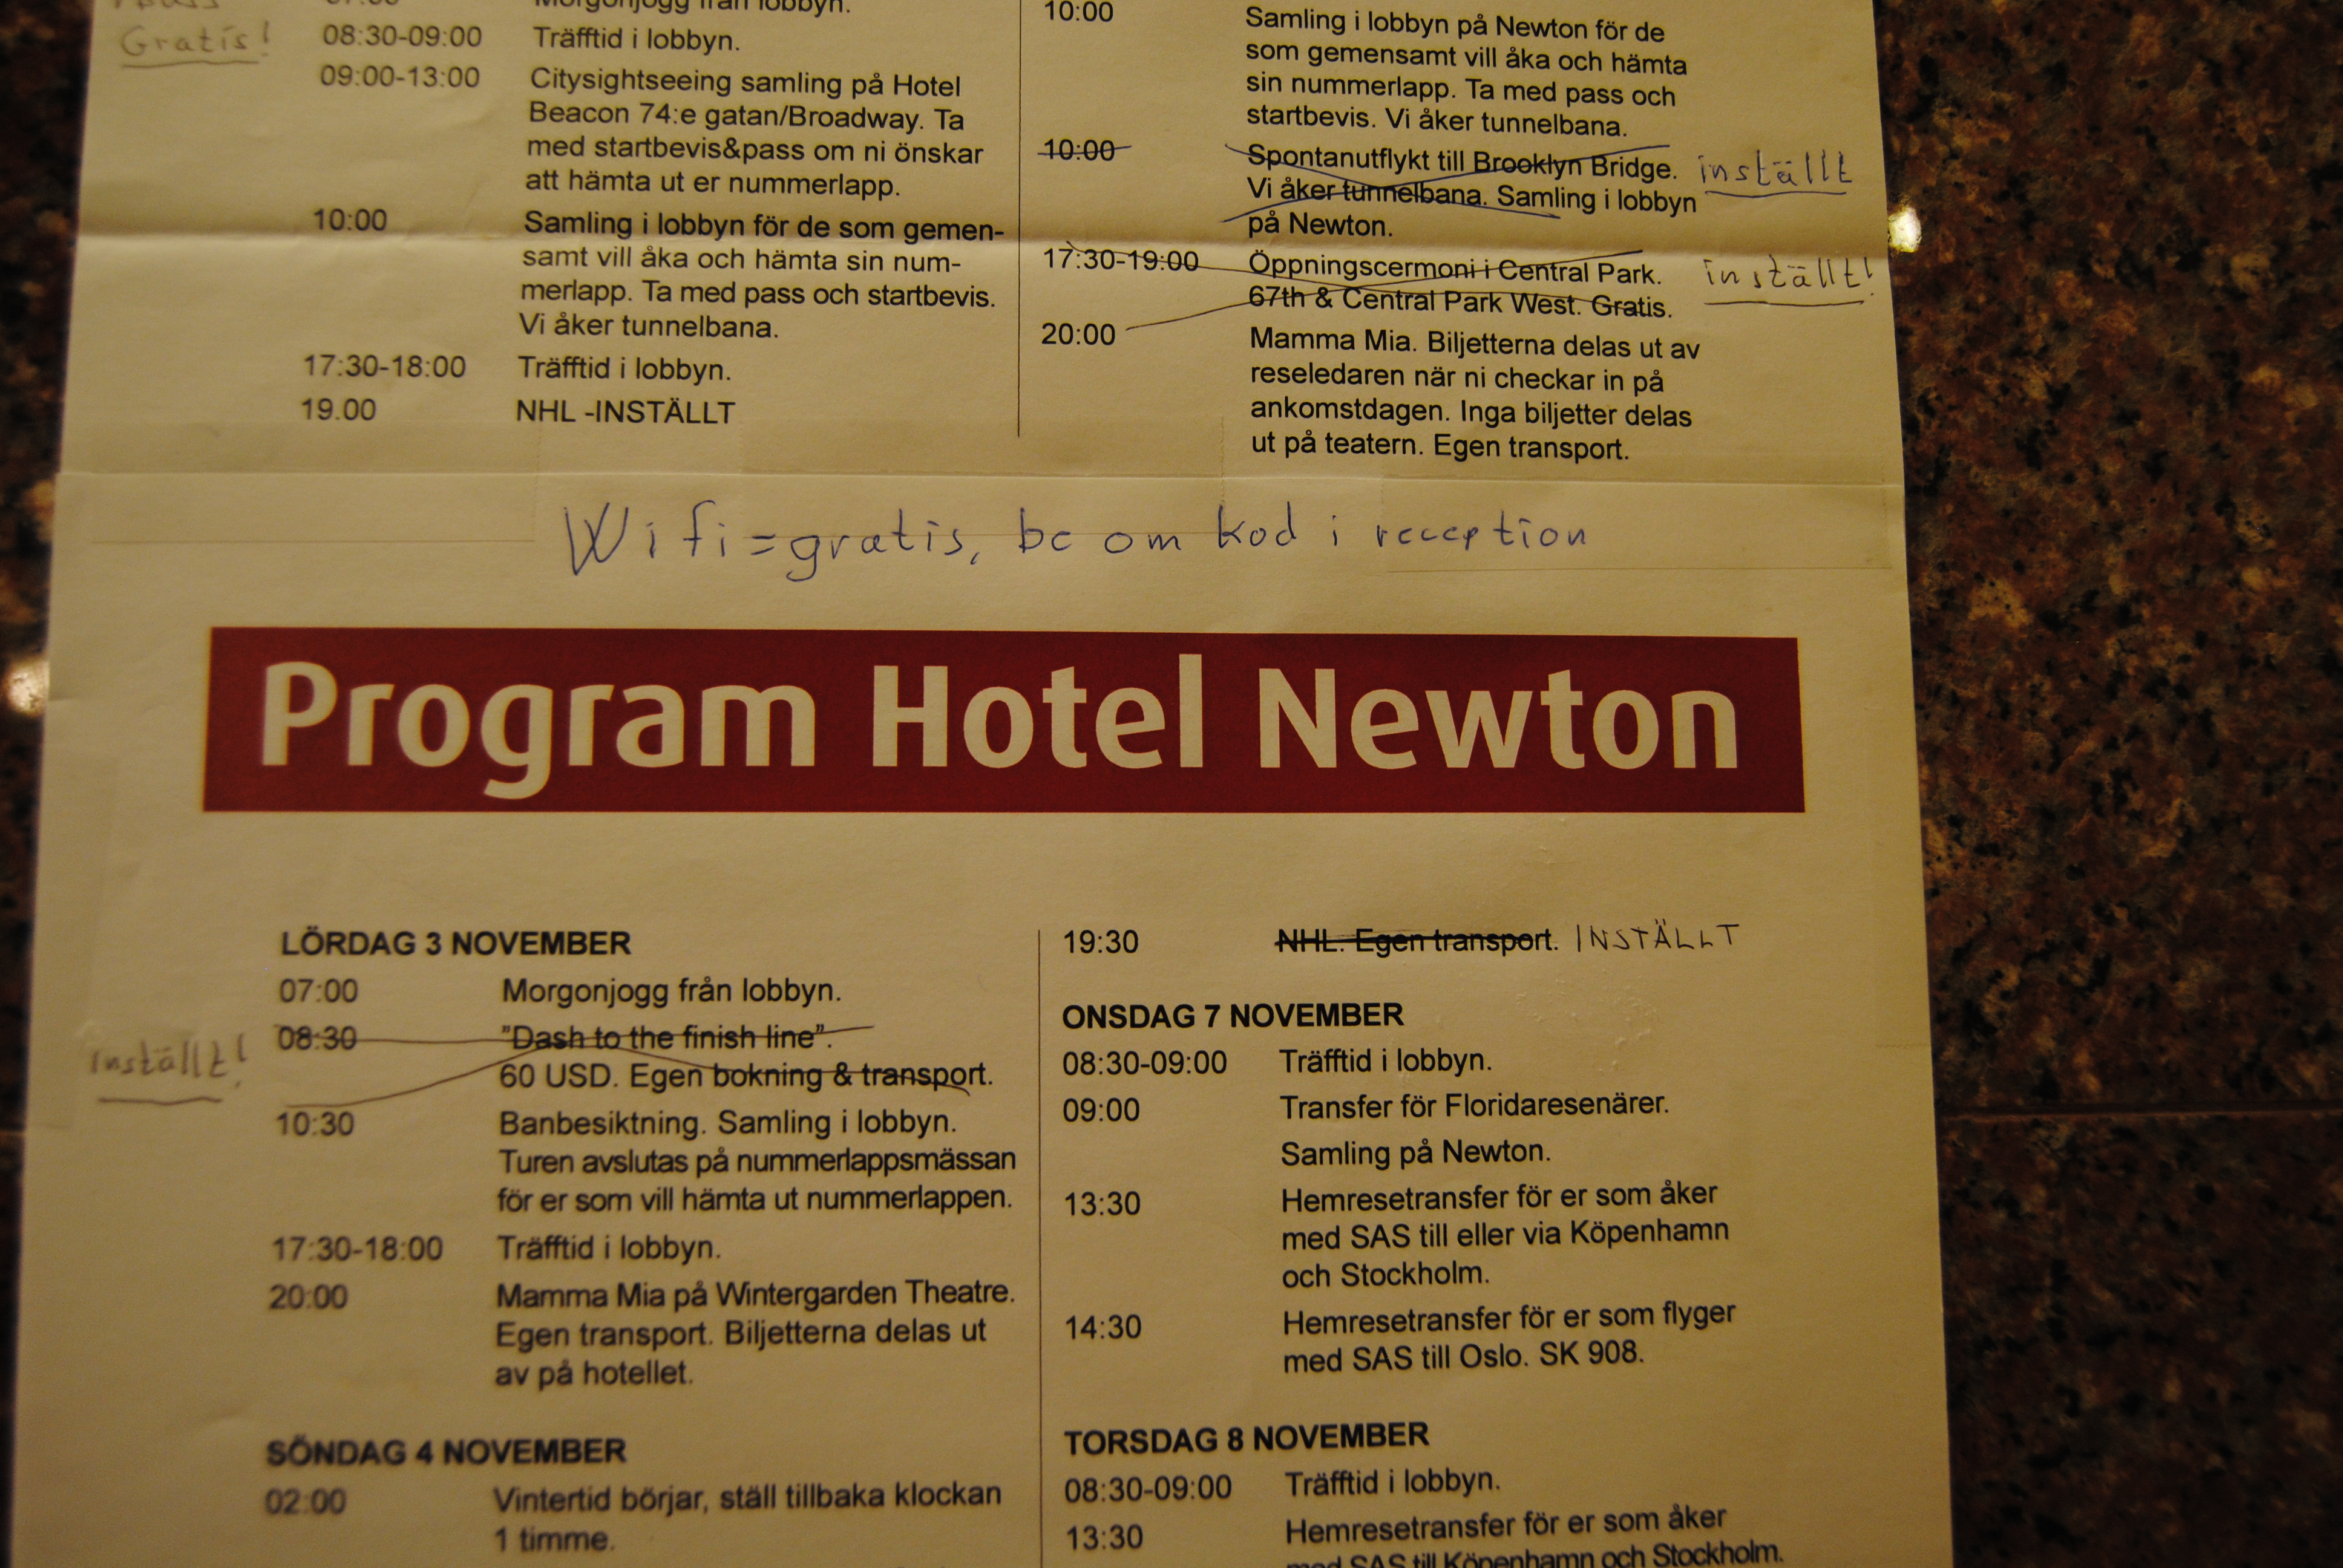 Gratis!
07:00 Morgonjogg från lobbyn.
08:30-09:00 Träfftid i lobbyn.
09:00-13:00 Citysightseeing samling på Hotel
Beacon 74:e gatan/Broadway. Ta
med startbevis&pass om ni önskar
att hämta ut er nummerlapp.
10:00 Samling i lobbyn för de som gemen-
samt vill åka och hämta sin num-
merlapp. Ta med pass och startbevis.
Vi åker tunnelbana.
17:30-18:00 Träfftid i lobbyn.
19.00 NHL -INSTÄLLT
10:00 Samling i lobbyn på Newton för de
som gemensamt vill åka och hämta
sin nummerlapp. Ta med pass och
startbevis. Vi åker tunnelbana.
10:00 Spontanutflykt till Brooklyn Bridge. inställt
Vi åker tunnelbana. Samling i lobbyn
på Newton.
17:30-19:00 Öppningscermoni i Central Park. inställt!
67th & Central Park West. Gratis.
20:00 Mamma Mia. Biljetterna delas ut av
reseledaren när ni checkar in på
ankomstdagen. Inga biljetter delas
ut på teatern. Egen transport.
Wifi=gratis, be om kod i reception
Program Hotel Newton
LÖRDAG 3 NOVEMBER
07:00 Morgonjogg från lobbyn.
inställt! 08:30 "Dash to the finish line".
60 USD. Egen bokning & transport.
10:30 Banbesiktning. Samling i lobbyn.
Turen avslutas på nummerlappsmässan
för er som vill hämta ut nummerlappen.
17:30-18:00 Träfftid i lobbyn.
20:00 Mamma Mia på Wintergarden Theatre.
Egen transport. Biljetterna delas ut
av på hotellet.
SÖNDAG 4 NOVEMBER
02:00 Vintertid börjar, ställ tillbaka klockan
1 timme.
19:30 NHL. Egen transport. INSTÄLLT
ONSDAG 7 NOVEMBER
08:30-09:00 Träfftid i lobbyn.
09:00 Transfer för Floridaresenärer.
Samling på Newton.
13:30 Hemresetransfer för er som åker
med SAS till eller via Köpenhamn
och Stockholm.
14:30 Hemresetransfer för er som flyger
med SAS till Oslo. SK 908.
TORSDAG 8 NOVEMBER
08:30-09:00 Träfftid i lobbyn.
13:30 Hemresetransfer för er som åker
med SAS till Köpenhamn och Stockholm.